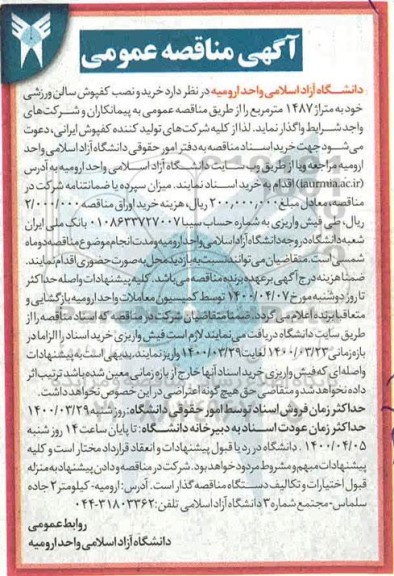 آگهی مناقصه عمومی
دانشگاه آزاد اسلامی واحد ارومیه در نظر دارد خرید و نصب کفپوش سالن ورزشی
خود به متراژ ۱۴۸۷ مترمربع را از طریق مناقصه عمومی به پیمانکاران و شرکت‌های
واجد شرایط واگذار نماید. لذا از کلیه شرکت‌های تولید کننده کفپوش ایرانی، دعوت
می‌شود جهت خرید اسناد مناقصه به دفتر امور حقوقی دانشگاه آزاد اسلامی واحد
ارومیه مراجعه و یا از طریق وب سایت دانشگاه آزاد اسلامی واحد ارومیه به آدرس
(iaurmia.ac.ir) اقدام به خرید اسناد نمایند. میزان سپرده یا ضمانتنامه شرکت در
مناقصه، معادل مبلغ ۲۰۰,۰۰۰,۰۰۰ ریال، هزینه خرید اوراق مناقصه ۲/۰۰۰/۰۰۰
ریال، طی فیش واریزی به شماره حساب سیبا ۰۱۰۸۶۳۳۷۲۷۰۰۷ بانک ملی ایران
شعبه دانشگاه در وجه دانشگاه آزاد اسلامی واحد ارومیه و مدت انجام موضوع مناقصه دو ماه
شمسی است. متقاضیان می‌توانند نسبت به بازدید محل به صورت حضوری اقدام نمایند.
ضمنا هزینه درج آگهی بر عهده برنده مناقصه می‌باشد. کلیه پیشنهادات واصله حداکثر
تا روز دوشنبه مورخ ۱۴۰۰/۰۴/۰۷ توسط کمیسیون معاملات واحد ارومیه بازگشایی و
متعاقبا برنده اعلام می‌گردد. ضمنا متقاضیان شرکت در مناقصه که اسناد مناقصه را از
طریق سایت دانشگاه دریافت می‌نمایند لازم است فیش واریزی خرید اسناد را الزاما در
بازه زمانی ۱۴۰۰/۰۳/۲۳ لغایت ۱۴۰۰/۰۳/۲۹ واریز نمایند. بدیهی است به پیشنهادات
واصله‌ای که فیش واریزی خرید اسناد آنها خارج از بازه زمانی معین شده باشد ترتیب اثر
داده نخواهد شد و متقاضی حق هیچ گونه اعتراضی در این خصوص نخواهد داشت.
حداکثر زمان فروش اسناد توسط امور حقوقی دانشگاه: روز شنبه ۱۴۰۰/۰۳/۲۹
حداکثر زمان عودت اسناد به دبیرخانه دانشگاه: تا پایان ساعت ۱۴ روز شنبه
۱۴۰۰/۰۴/۰۵. دانشگاه در رد یا قبول پیشنهادات و انعقاد قرارداد مختار است و کلیه
پیشنهادات مبهم و مشروط مردود خواهد بود. شرکت در مناقصه و دادن پیشنهاد به منزله
قبول اختیارات و تکالیف دستگاه مناقصه گذار است. آدرس: ارومیه- کیلومتر ۲ جاده
سلماس- مجتمع شماره ۳ دانشگاه آزاد اسلامی تلفن: ۳۱۸۰۳۳۶۲-۰۴۴
روابط عمومی
دانشگاه آزاد اسلامی واحد ارومیه